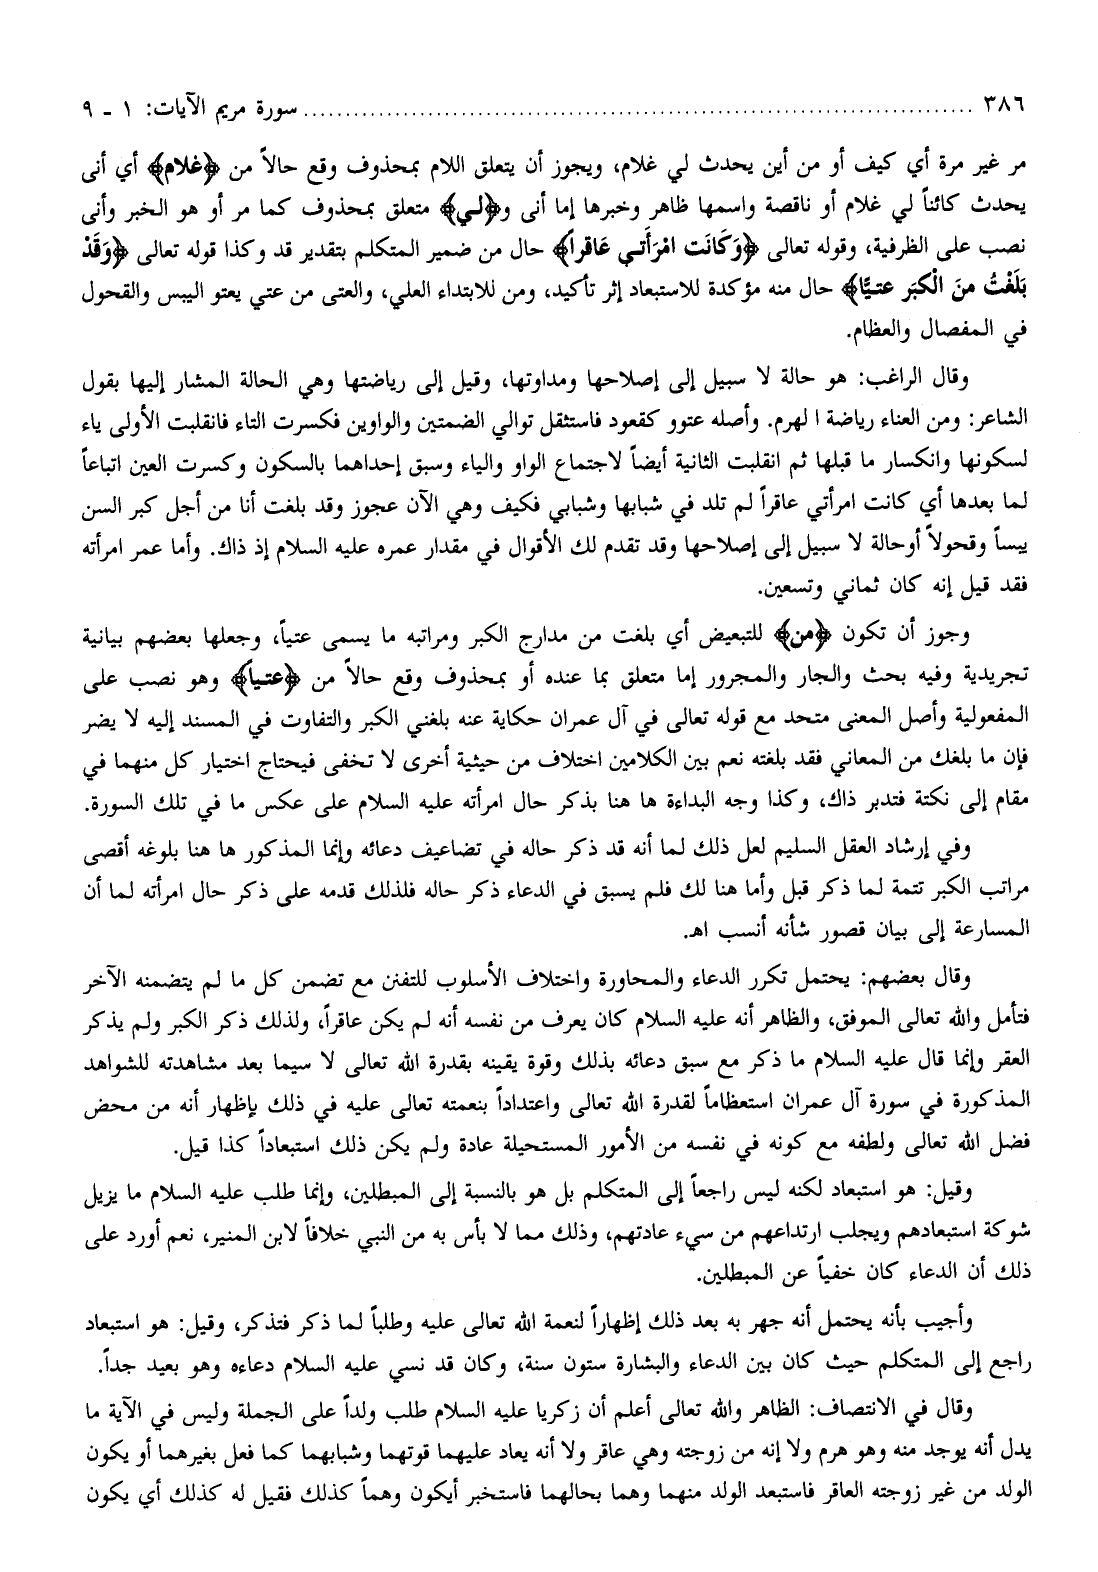 ٣٨٦ ........ سورة مريم الآيات: ١ - ٩
مر غير مرة أي كيف أو من أين يحدث لي غلام، ويجوز أن يتعلق اللام بمحذوف وقع حالاً من ﴿غلام﴾ أي أنى
يحدث كائناً لي غلام أو ناقصة واسمها ظاهر وخبرها إما أنى و﴿لي﴾ متعلق بمحذوف كما مر أو هو الخبر وأنى
نصب على الظرفية، وقوله تعالى ﴿وَكَانَت امْرَأَتي عَاقراً﴾ حال من ضمير المتكلم بتقدير قد وكذا قوله تعالى ﴿وَقَدْ
بَلَغْتُ منَ الْكبَر عتيًّا﴾ حال منه مؤكدة للاستبعاد إثر تأكيد، ومن للابتداء العلي، والعتى من عتي يعتو اليبس والقحول
في المفصال والعظام.
وقال الراغب: هو حالة لا سبيل إلى إصلاحها ومداوتها، وقيل إلى رياضتها وهي الحالة المشار إليها بقول
الشاعر: ومن العناء رياضة ا لهرم. وأصله عتوو كقعود فاستثقل توالي الضمتين والواوين فكسرت التاء فانقلبت الأولى ياء
لسكونها وانكسار ما قبلها ثم انقلبت الثانية أيضاً لاجتماع الواو والياء وسبق إحداهما بالسكون وكسرت العين اتباعاً
لما بعدها أي كانت امرأتي عاقراً لم تلد في شبابها وشبابي فكيف وهي الآن عجوز وقد بلغت أنا من أجل كبر السن
يبساً وقحولاً أوحالة لا سبيل إلى إصلاحها وقد تقدم لك الأقوال في مقدار عمره عليه السلام إذ ذاك. وأما عمر امرأته
فقد قيل إنه كان ثماني وتسعين.
وجوز أن تكون ﴿من﴾ للتبعيض أي بلغت من مدارج الكبر ومراتبه ما يسمى عتياً، وجعلها بعضهم بيانية
تجريدية وفيه بحث والجار والمجرور إما متعلق بما عنده أو بمحذوف وقع حالاً من ﴿عتياً﴾ وهو نصب على
المفعولية وأصل المعنى متحد مع قوله تعالى في آل عمران حكاية عنه بلغني الكبر والتفاوت في المسند إليه لا يضر
فإن ما بلغك من المعاني فقد بلغته نعم بين الكلامين اختلاف من حيثية أخرى لا تخفى فيحتاج اختيار كل منهما في
مقام إلى نكتة فتدبر ذاك، وكذا وجه البداءة ها هنا بذكر حال امرأته عليه السلام على عكس ما في تلك السورة.
وفي إرشاد العقل السليم لعل ذلك لما أنه قد ذكر حاله في تضاعيف دعائه وإنما المذكور ها هنا بلوغه أقصى
مراتب الكبر تتمة لما ذكر قبل وأما هنا لك فلم يسبق في الدعاء ذكر حاله فلذلك قدمه على ذكر حال امرأته لما أن
المسارعة إلى بيان قصور شأنه أنسب اهـ.
وقال بعضهم: يحتمل تكرر الدعاء والمحاورة واختلاف الأسلوب للتفنن مع تضمن كل ما لم يتضمنه الآخر
فتأمل والله تعالى الموفق، والظاهر أنه عليه السلام كان يعرف من نفسه أنه لم يكن عاقراً، ولذلك ذكر الكبر ولم يذكر
العقر وإنما قال عليه السلام ما ذكر مع سبق دعائه بذلك وقوة يقينه بقدرة الله تعالى لا سيما بعد مشاهدته للشواهد
المذكورة في سورة آل عمران استعظاماً لقدرة الله تعالى واعتداداً بنعمته تعالى عليه في ذلك بإظهار أنه من محض
فضل الله تعالى ولطفه مع كونه في نفسه من الأمور المستحيلة عادة ولم يكن ذلك استبعاداً كذا قيل.
وقيل: هو استبعاد لكنه ليس راجعاً إلى المتكلم بل هو بالنسبة إلى المبطلين، وإنما طلب عليه السلام ما يزيل
شوكة استبعادهم ويجلب ارتداعهم من سيء عادتهم، وذلك مما لا بأس به من النبي خلافاً لابن المنير، نعم أورد على
ذلك أن الدعاء كان خفياً عن المبطلين.
وأجيب بأنه يحتمل أنه جهر به بعد ذلك إظهاراً لنعمة الله تعالى عليه وطلباً لما ذكر فتذكر، وقيل: هو استبعاد
راجع إلى المتكلم حيث كان بين الدعاء والبشارة ستون سنة، وكان قد نسي عليه السلام دعاءه وهو بعيد جداً.
وقال في الانتصاف: الظاهر والله تعالى أعلم أن زكريا عليه السلام طلب ولداً على الجملة وليس في الآية ما
يدل أنه يوجد منه وهو هرم ولا إنه من زوجته وهي عاقر ولا أنه يعاد عليهما قوتهما وشبابهما كما فعل بغيرهما أو يكون
الولد من غير زوجته العاقر فاستبعد الولد منهما وهما بحالهما فاستخبر أيكون وهماً كذلك فقيل له كذلك أي يكون